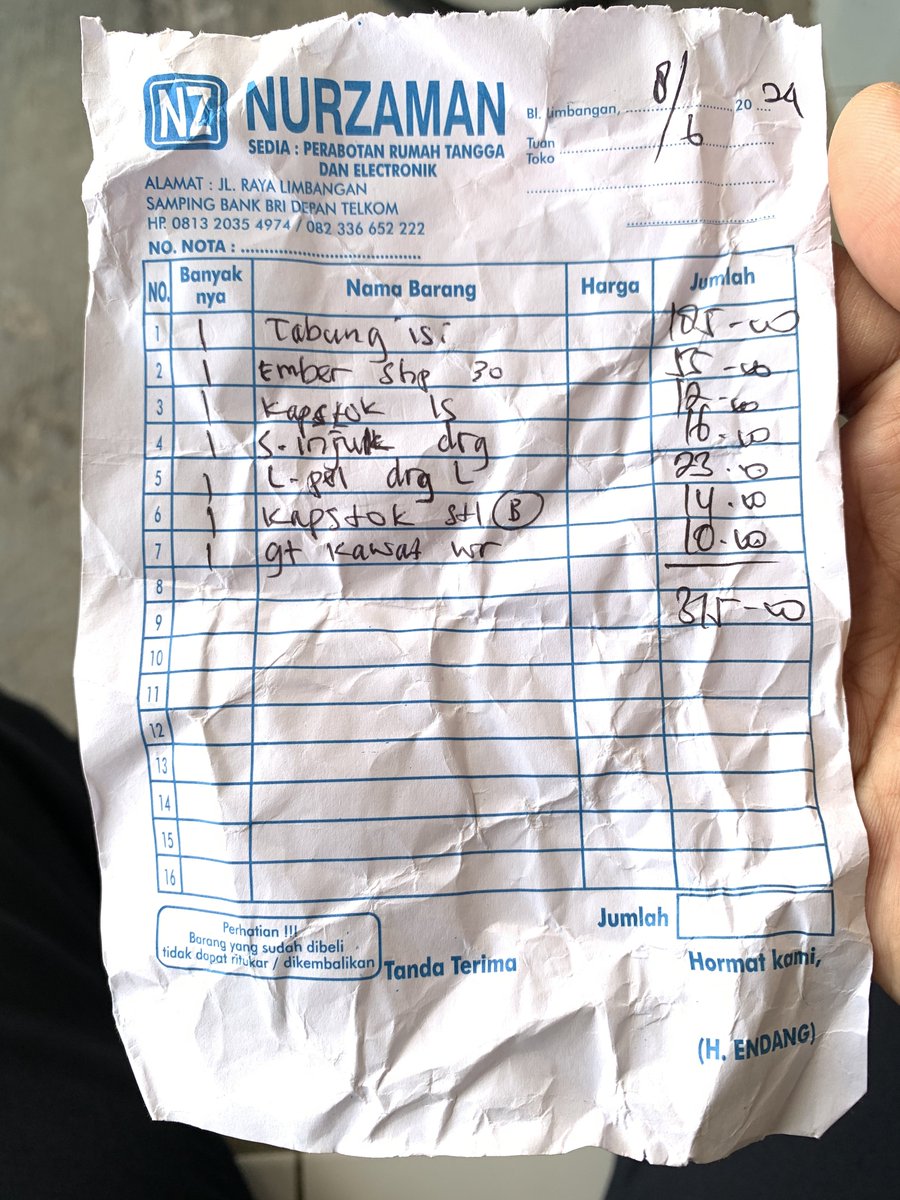 NZ NURZAMAN
SEDIA : PERABOTAN RUMAH TANGGA
DAN ELECTRONIK
ALAMAT : JL. RAYA LIMBANGAN
SAMPING BANK BRI DEPAN TELKOM
HP. 0813 2035 4974 / 082 336 652 222
NO. NOTA :
Bl. Limbangan, 8/6 20 24
Tuan
Toko
NO. Banyak nya Nama Barang Harga Jumlah
1 1 Tabung isi
2 1 Ember 30 55-00
3 1 Kapstok 12-00
4 1 S-injuk drg 16.00
5 1 drg L 23.00
6 1 Kapstok stl B 14.00
7 1 gt Kawat wr 10.00
8
9
10
11
12
13
14
15
16
Jumlah
Perhatian !!!
Barang yang sudah dibeli
tidak dapat ritukar / dikembalikan
Tanda Terima
Hormat kami,
(H. ENDANG)